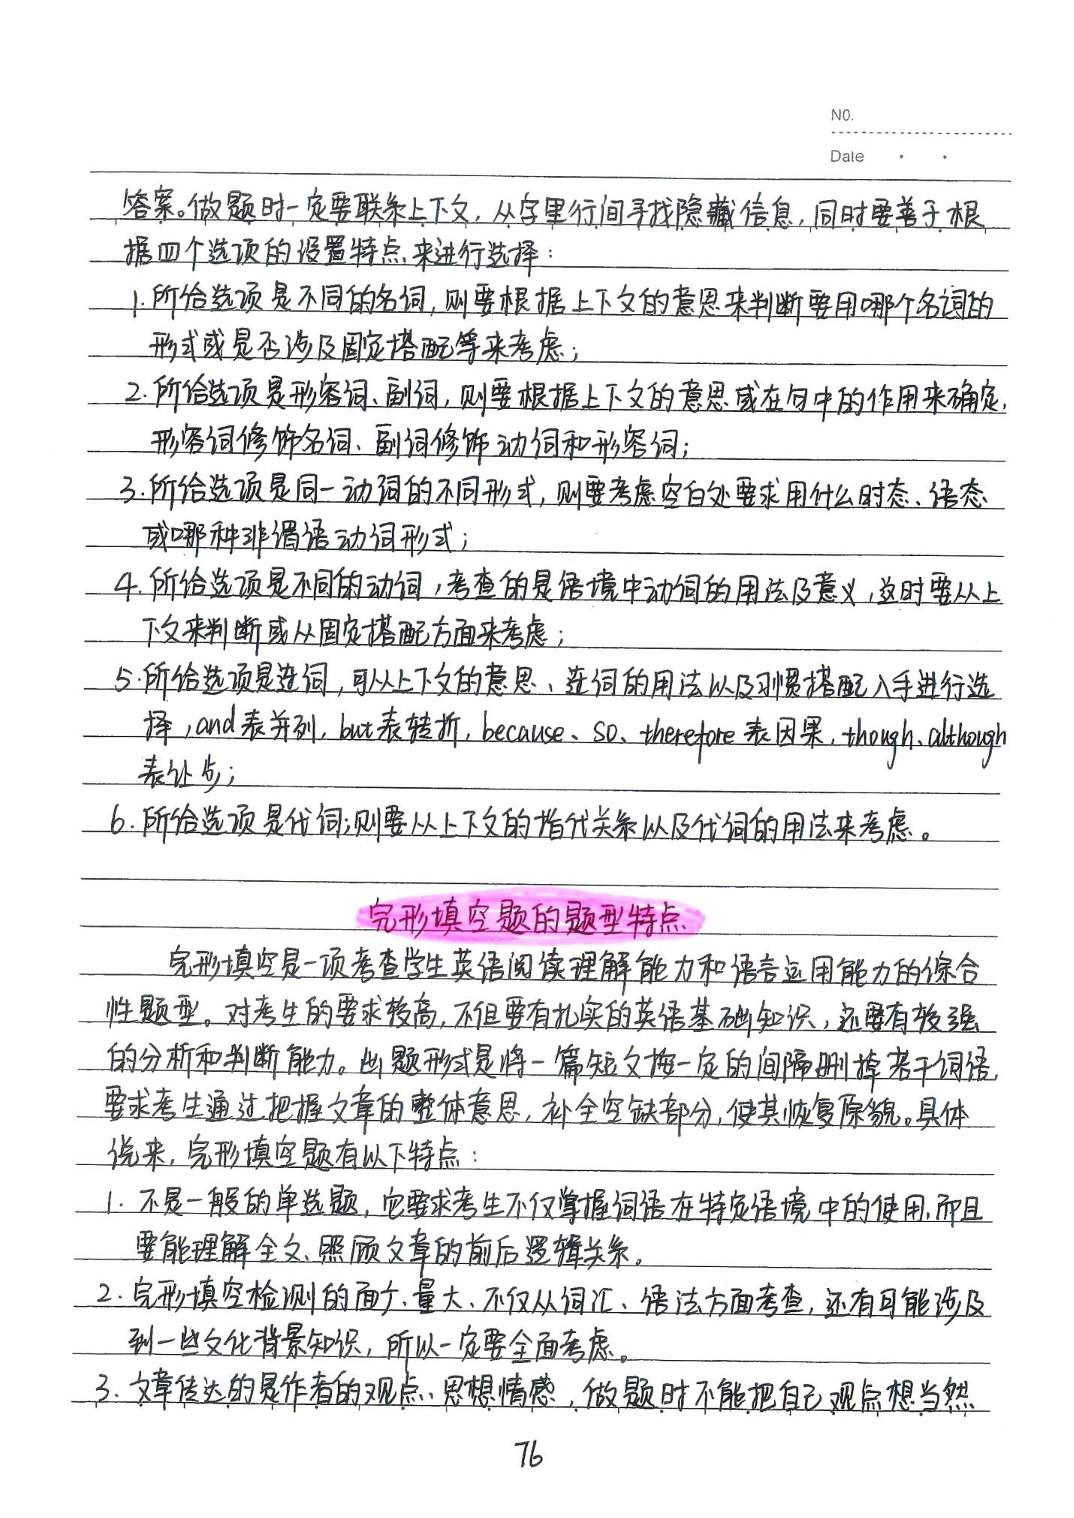 NO.
Date
答案。做题时一定要联系上下文，从字里行间寻找隐藏信息，同时要善于根
据四个选项的设置特点来进行选择：
1.所给选项是不同的名词，则要根据上下文的意思来判断要用哪个名词的
形式或是否涉及固定搭配等来考虑；
2.所给选项是形容词、副词，则要根据上下文的意思或在句中的作用来确定，
形容词修饰名词、副词修饰动词和形容词；
3.所给选项是同一动词的不同形式，则要考虑空白处要求用什么时态、语态
或哪种非谓语动词形式；
4.所给选项是不同的动词，考查的是语境中动词的用法及意义，这时要从上
下文来判断或从固定搭配方面来考虑；
5.所给选项是连词，可从上下文的意思、连词的用法以及习惯搭配入手进行选
择，and表并列，but表转折，because、so、therefore表因果，though、although
表让步；
6.所给选项是代词；则要从上下文的指代关系以及代词的用法来考虑。
完形填空题的题型特点
完形填空是一项考查学生英语阅读理解能力和语言运用能力的综合
性题型。对考生的要求较高，不但要有扎实的英语基础知识，还要有较强
的分析和判断能力。此题形式是将一篇短文按一定的间隔删掉若干词语，
要求考生通过把握文章的整体意思，补全空缺部分，使其恢复原貌。具体
说来，完形填空题有以下特点：
1.不是一般的单选题，它要求考生不仅掌握词语在特定语境中的使用，而且
要能理解全文、照顾文章的前后逻辑关系。
2.完形填空检测的面广、量大、不仅从词汇、语法方面考查，还有可能涉及
到一些文化背景知识，所以一定要全面考虑。
3.文章传达的是作者的观点、思想情感，做题时不能把自己观点想当然
76